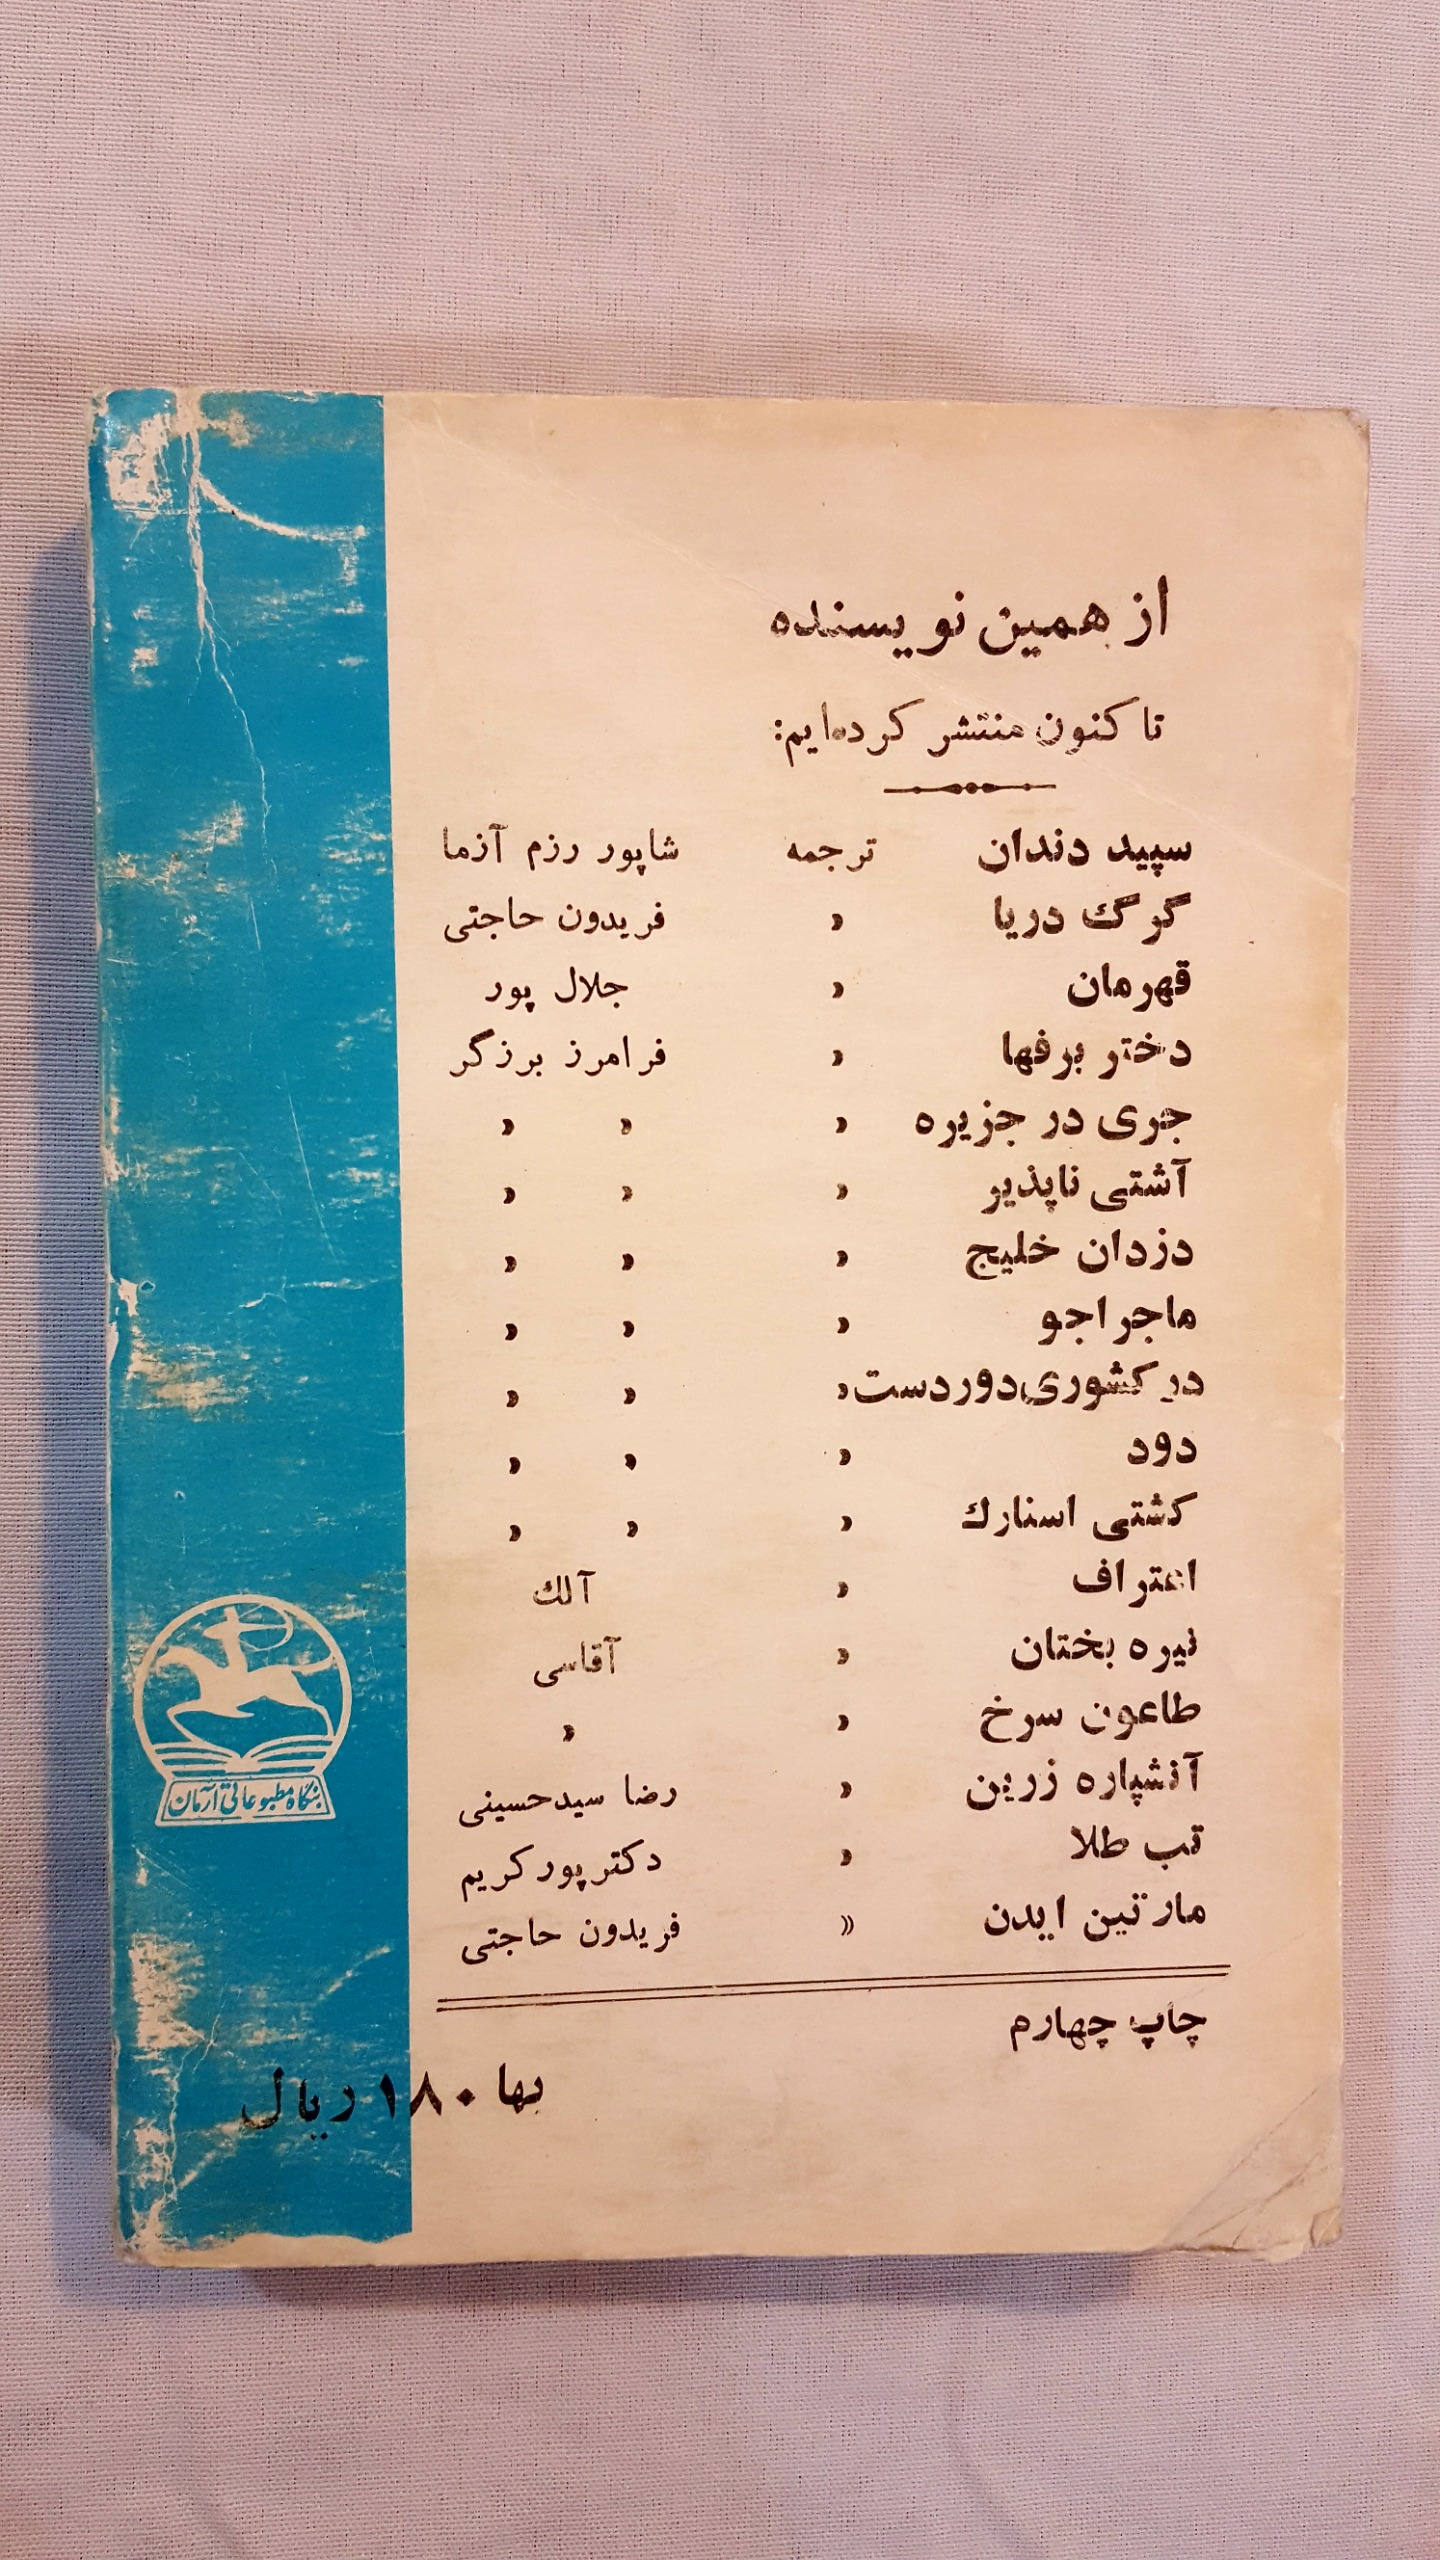 از همین نویسنده
تا کنون منتشر کرده‌ایم:
سپید دندان ترجمه شاپور رزم آزما
گرگ دریا » فریدون حاجتی
قهرمان » جلال پور
دختر برفها » فرامرز برزگر
جری در جزیره » » »
آشتی ناپذیر » » »
دزدان خلیج » » »
ماجراجو » » »
در کشوری دوردست » » »
دود » » »
کشتی اسنارك » » »
اعتراف » آلك
تیره بختان » آقاسی
طاعون سرخ » »
آتشپاره زرین » رضا سیدحسینی
تب طلا » دکتر پور کریم
مارتین ایدن » فریدون حاجتی
چاپ چهارم
بها ۱۸۰ ریال
بنگاه مطبوعاتی آرمان